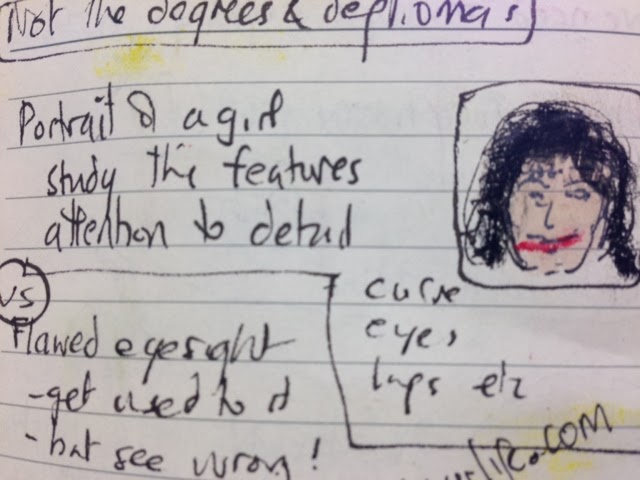 Not the degrees & deploma s
Portrait of a girl
study the features
attention to detail
vs
Flawed eyesight
-get used to it
-but see wrong!
curve
eyes,
lips etc
life.COM